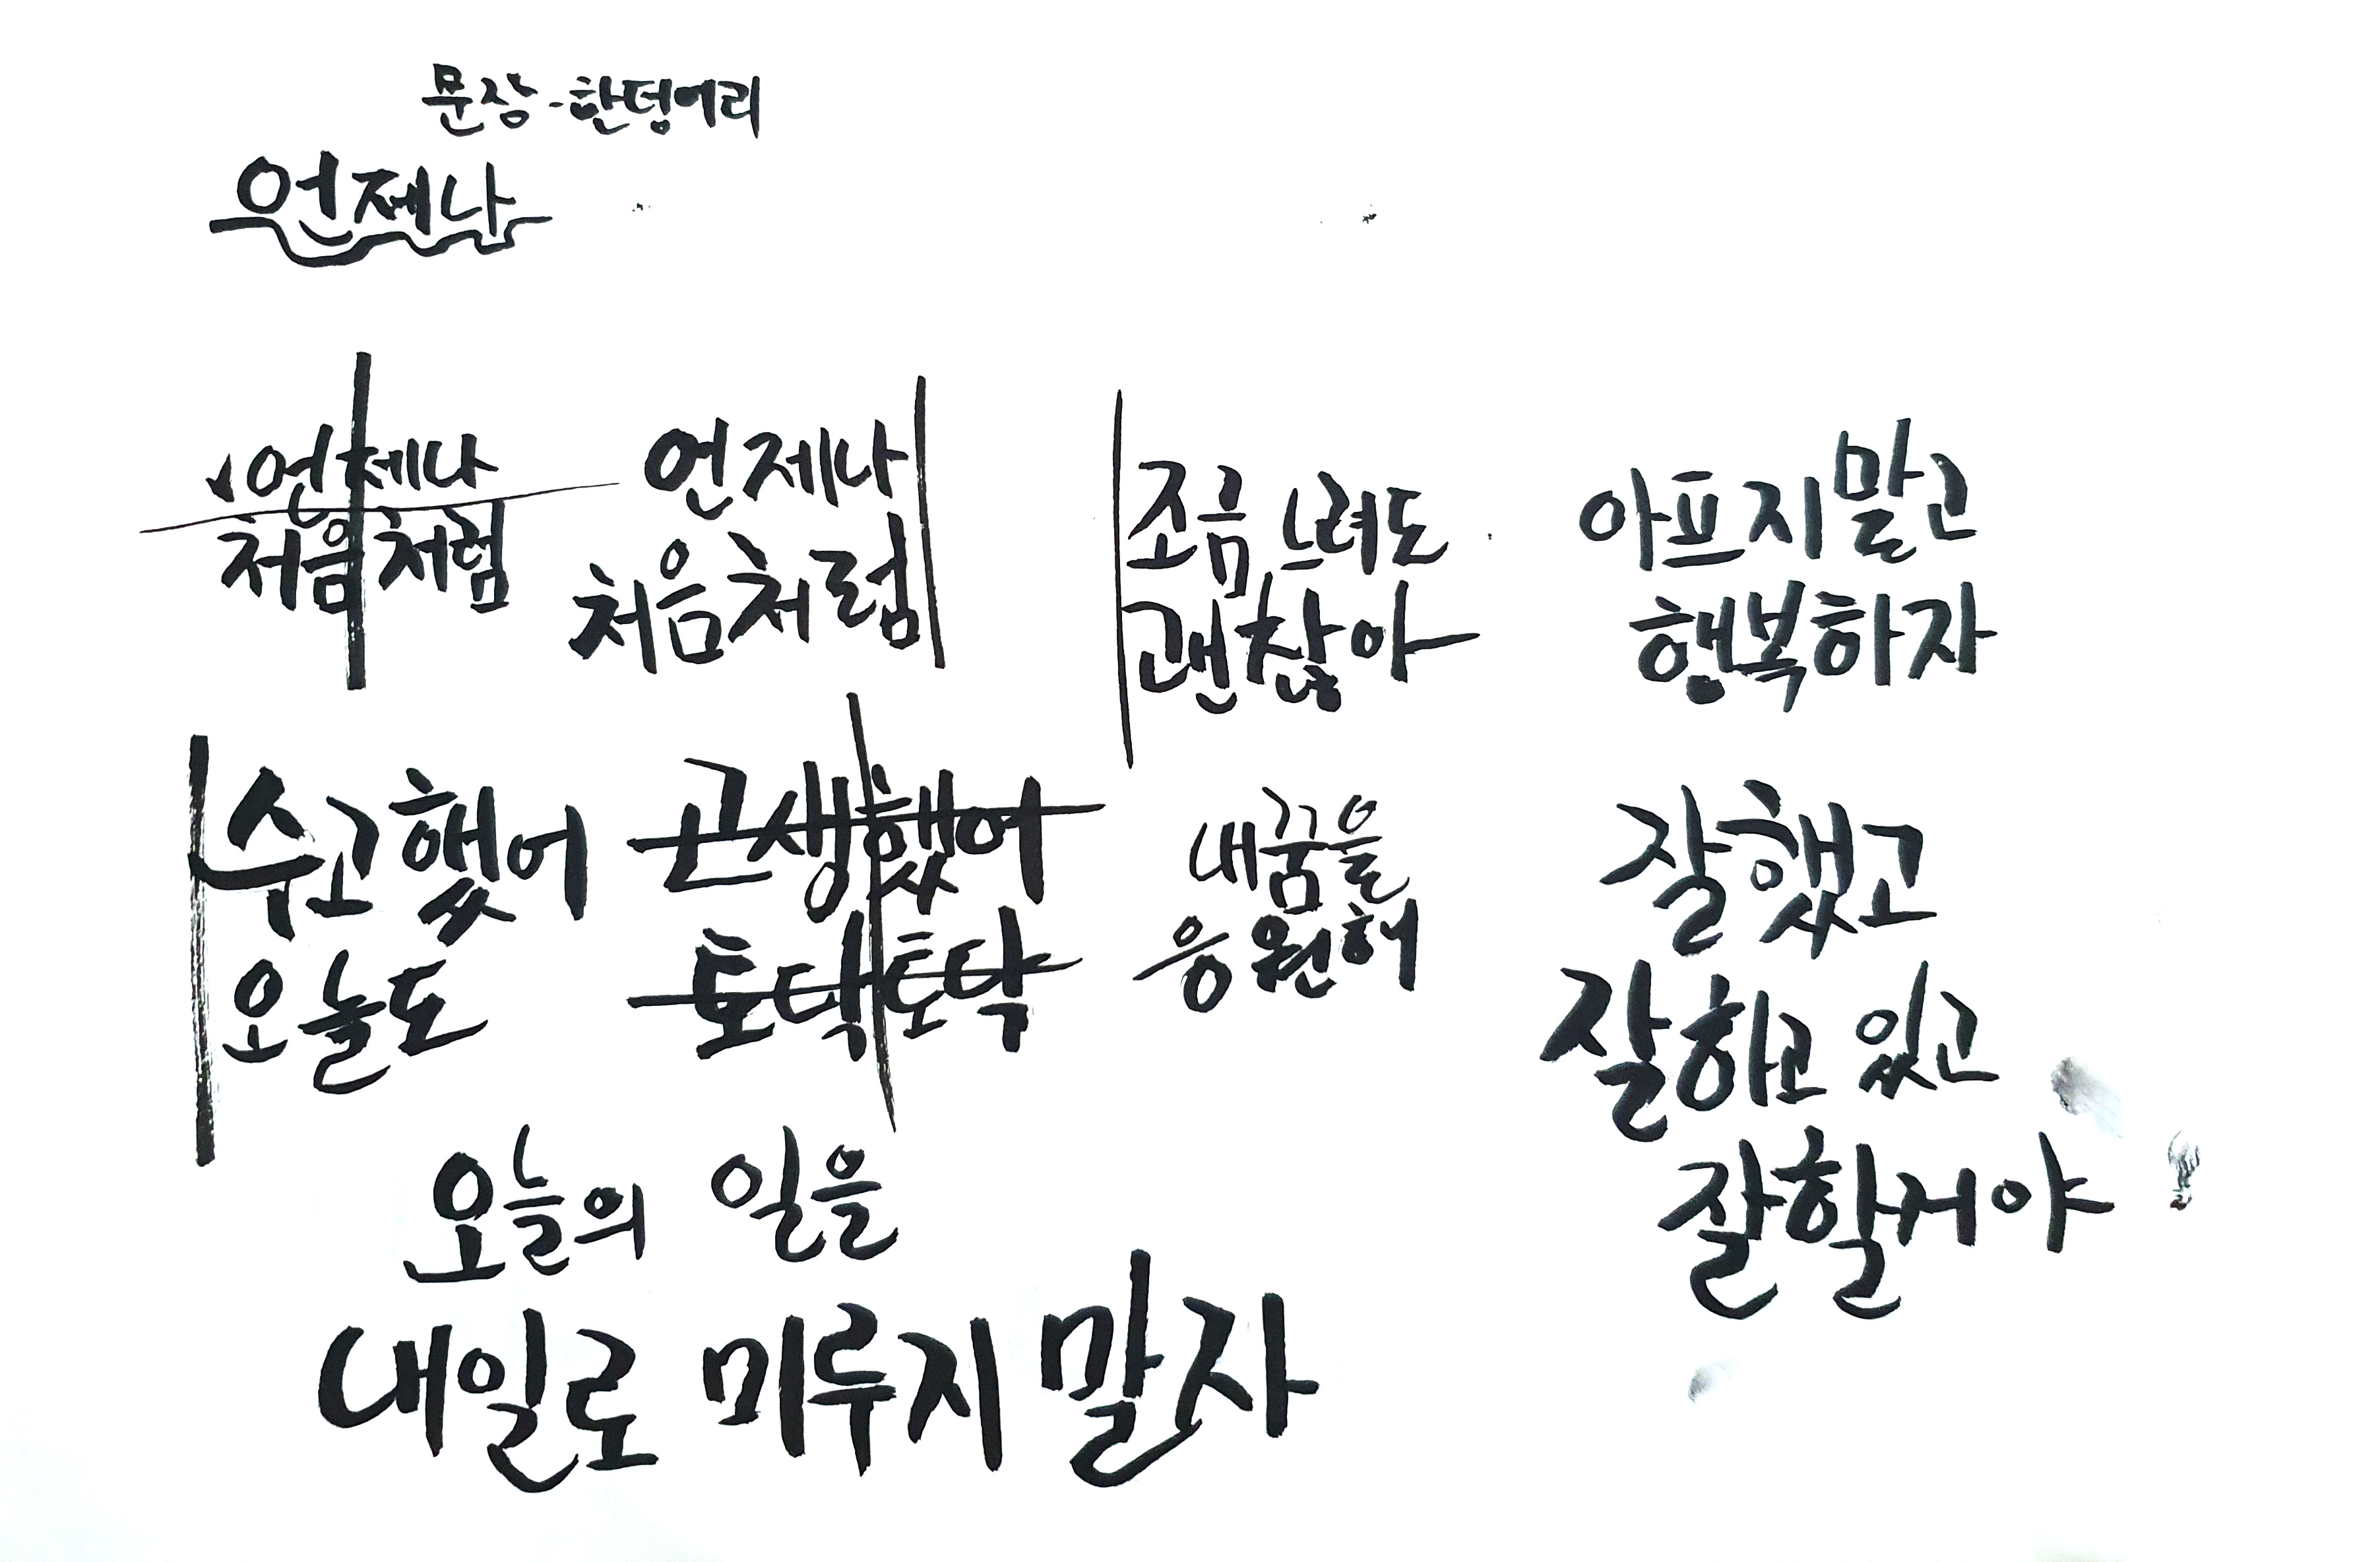 문장-한덩어리
언제나
언제나
처음처럼
언제나
처음처럼
조금 느려도
괜찮아
아프지 말고
행복하자
수고했어
오늘도
고생했어
토닥토닥
내 꿈을
응원해
잘했고
잘하고 있고
잘할거야
오늘의 일을
내일로 미루지 말자